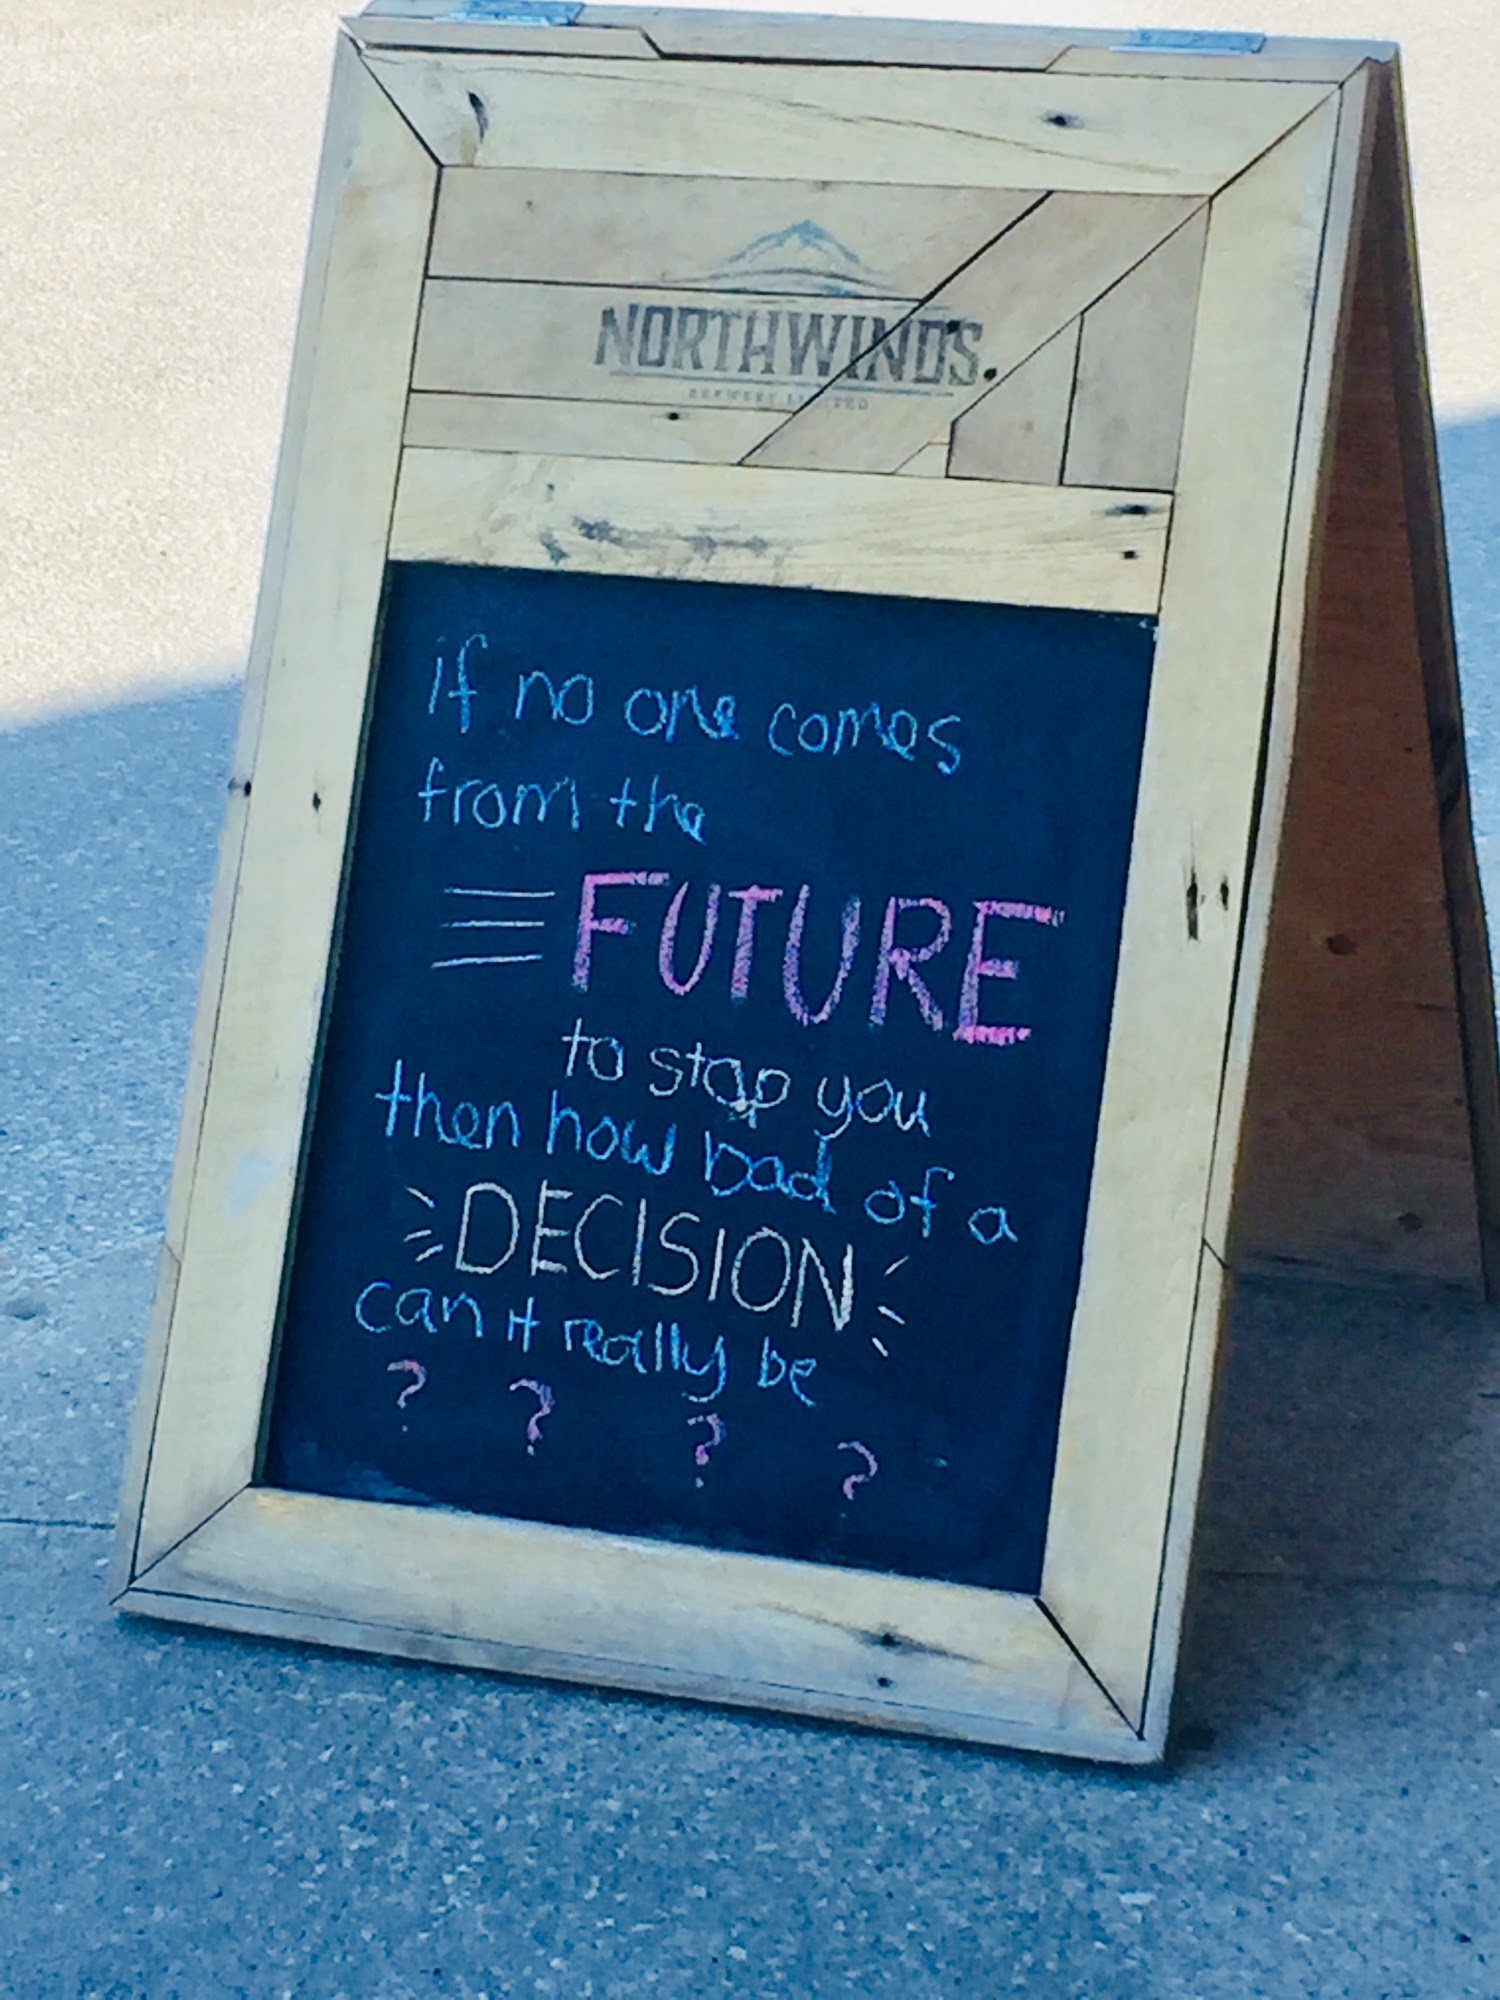 NORTHWINDS.
BREWERY LIMITED
if no one comes
from the
FUTURE
to stop you
then how bad of a
DECISION
can it really be
? ? ? ?